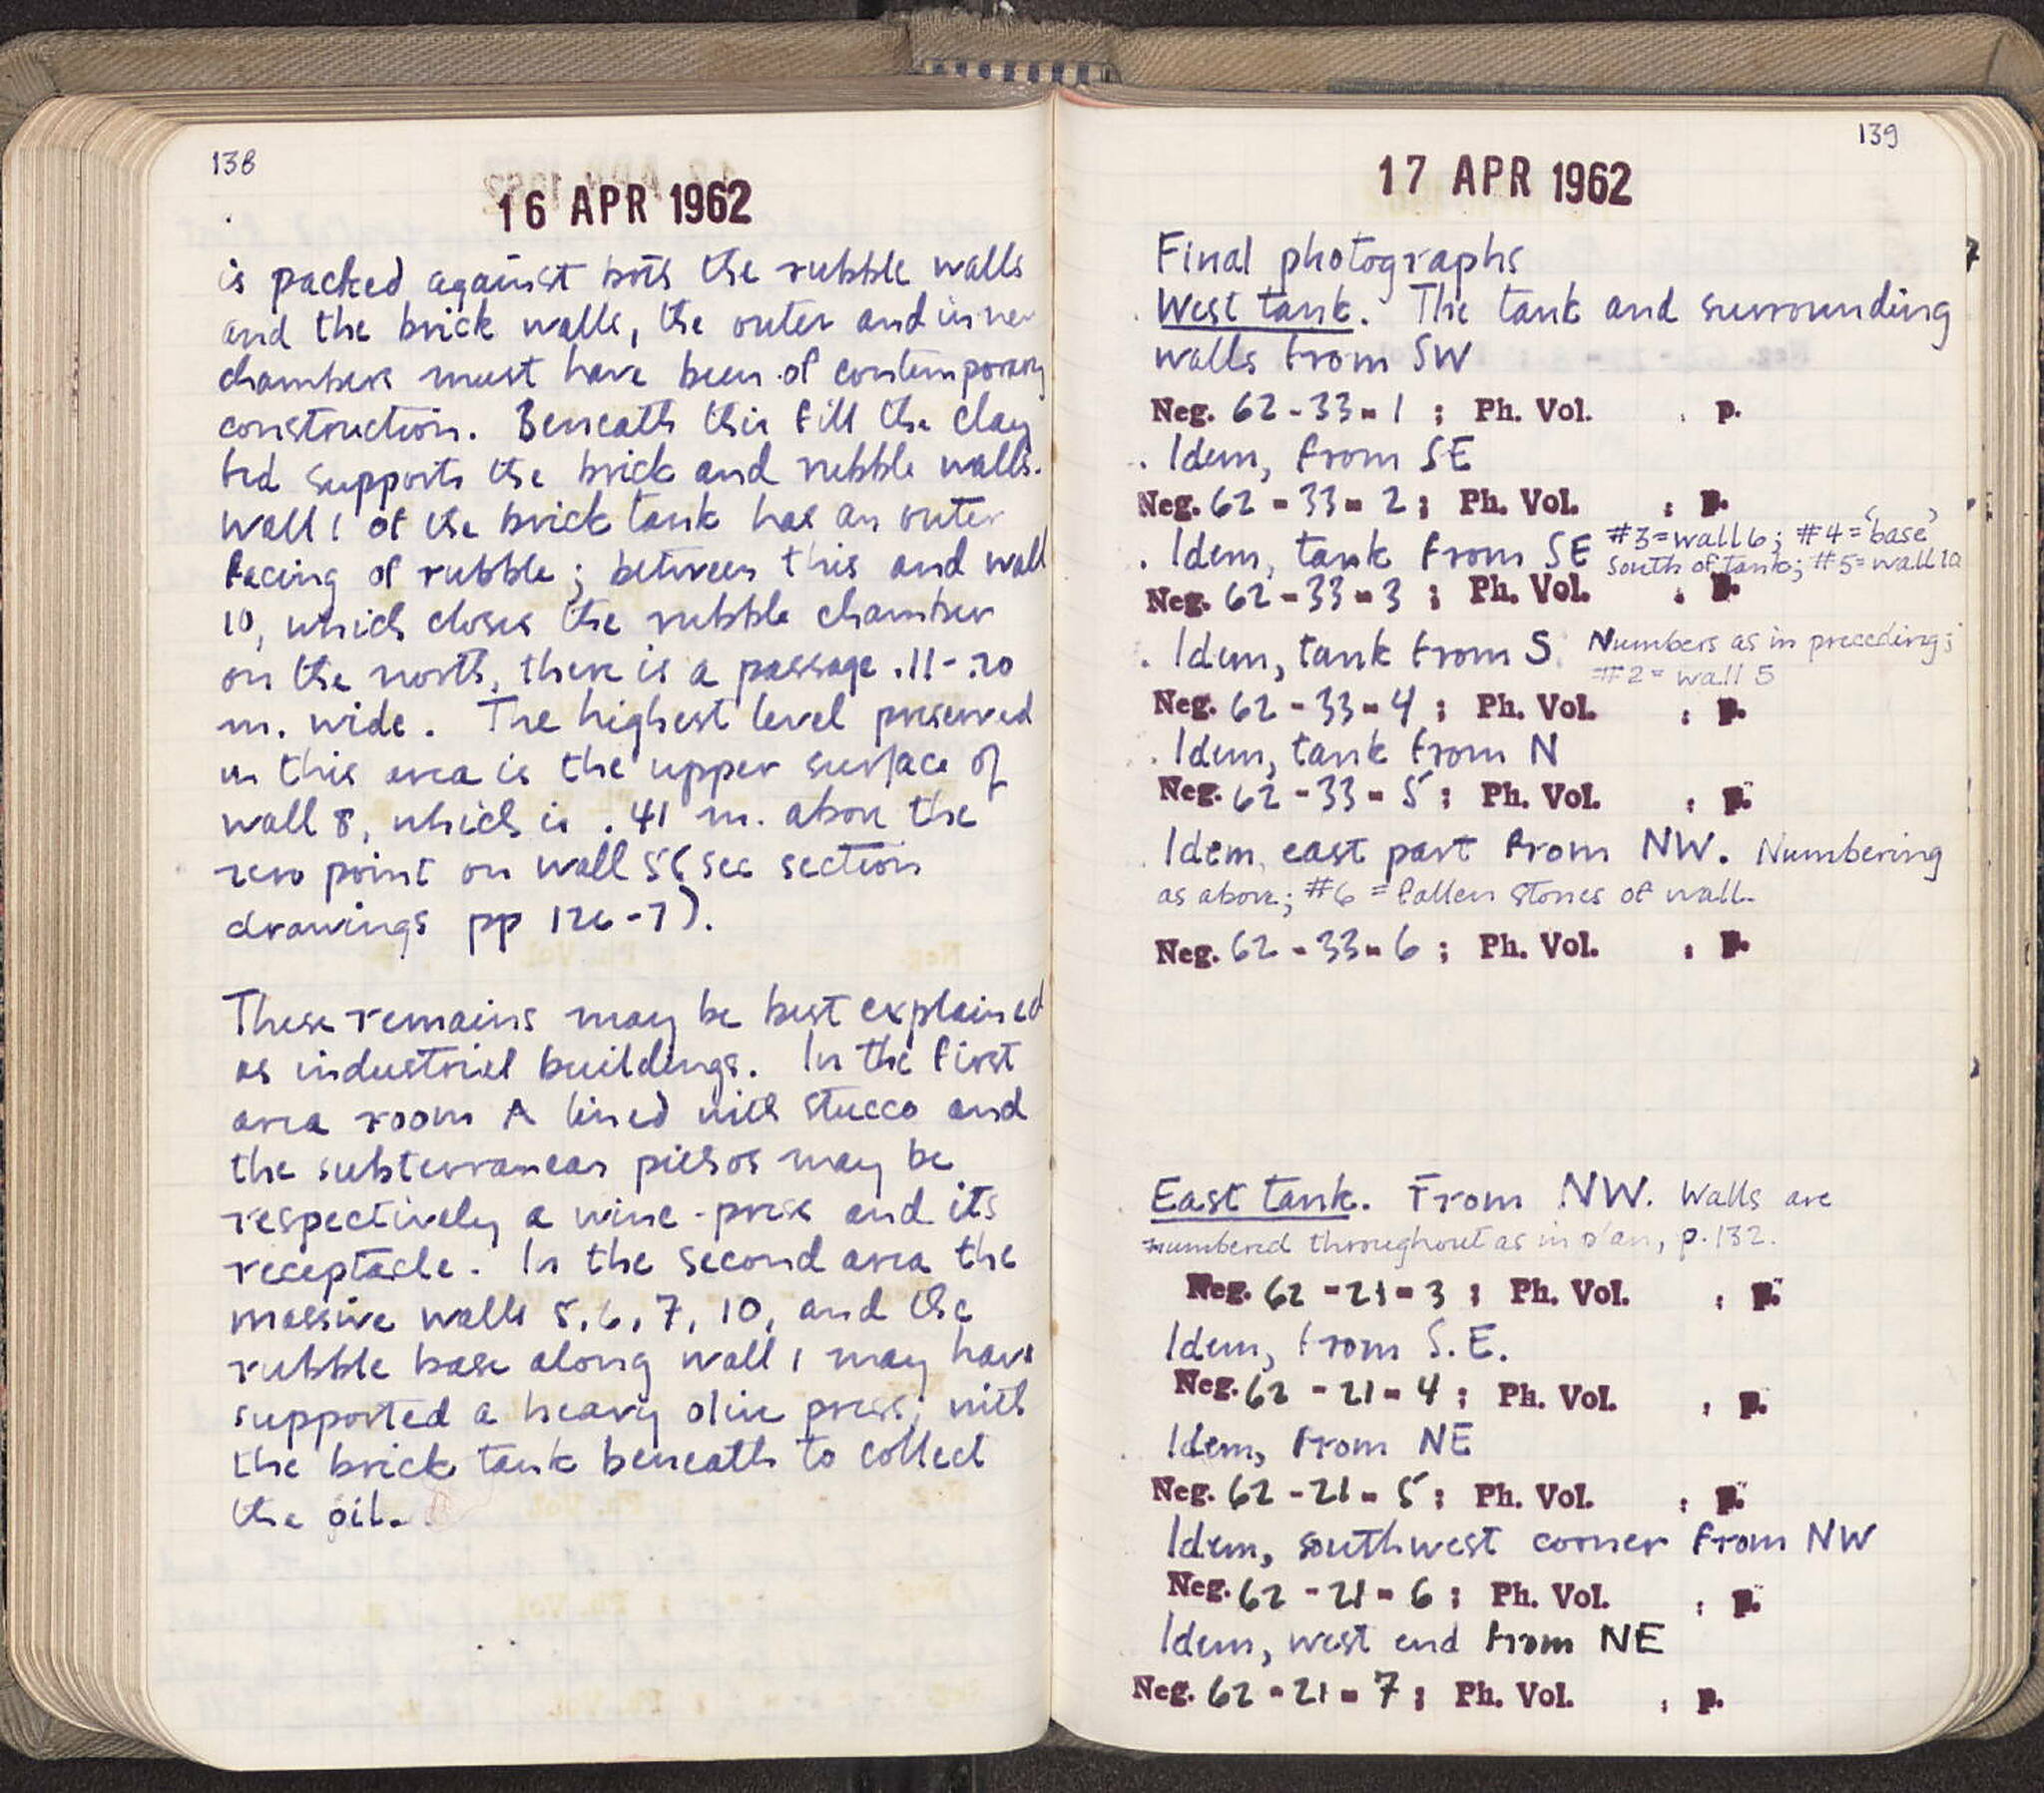 138
16 APR 1962
is packed against both the rubble walls
and the brick walls, the outer and inner
chambers must have been of contemporary
construction. Beneath this fill the clay
bed supports the brick and rubble walls.
Wall 1 of the brick tank has an outer
facing of rubble; between this and wall
10, which closes the rubble chamber
on the north, there is a passage .11-.20
m. wide. The highest level preserved
in this area is the upper surface of
wall 8, which is .41 m. above the
zero point on wall 5 (see section
drawings pp 126-7).
These remains may be best explained
as industrial buildings. In the first
area room A lined with stucco and
the subterranean pithos may be
respectively a wine-press and its
receptacle. In the second area the
massive walls 5, 6, 7, 10, and the
rubble base along wall 1 may have
supported a heavy olive press, with
the brick tank beneath to collect
the oil.
139
17 APR 1962
Final photographs
West tank. The tank and surrounding
walls from SW
Neg. 62-33-1; Ph. Vol. , p.
Idem, from SE
Neg. 62-33-2; Ph. Vol. : p.
Idem, tank from SE #3=wall 6; #4='base'
South of tank; #5=wall 10
Neg. 62-33-3; Ph. Vol. : p.
Idem, tank from S. Numbers as in preceding;
#2= wall 5
Neg. 62-33-4; Ph. Vol. : p.
Idem, tank from N
Neg. 62-33-5; Ph. Vol. : p.
Idem, east part from NW. Numbering
as above; #6 = fallen stones of wall.
Neg. 62-33-6; Ph. Vol. : p.
East tank. From NW. Walls are
numbered throughout as in plan, p. 132.
Neg. 62-21-3; Ph. Vol. : p.
Idem, from S.E.
Neg. 62-21-4; Ph. Vol. : p.
Idem, from NE
Neg. 62-21-5; Ph. Vol. : p.
Idem, southwest corner from NW
Neg. 62-21-6; Ph. Vol. : p.
Idem, west end from NE
Neg. 62-21-7; Ph. Vol. : p.